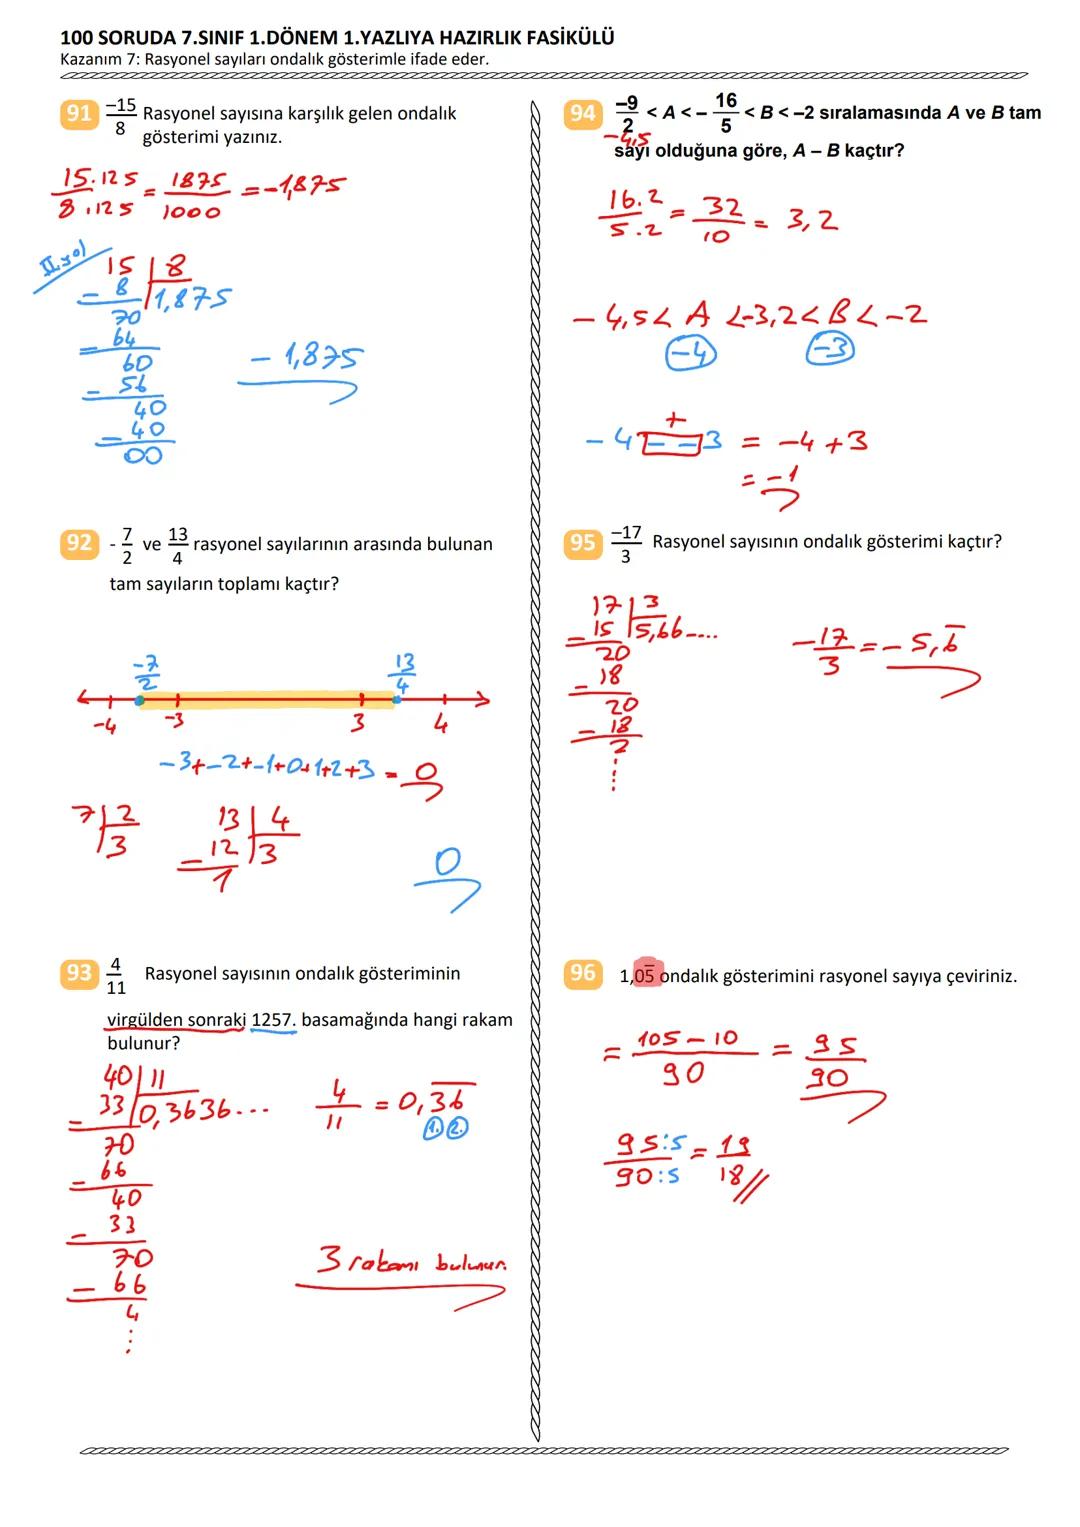 100 SORUDA 7.SINIF 1.DÖNEM 1.YAZLIYA HAZIRLIK FASİKÜLÜ
Kazanım 7: Rasyonel sayıları ondalık gösterimle ifade eder.
91 -15/8 Rasyonel sayısına karşılık gelen ondalık
gösterimi yazınız.
15.125/8.125 = 1875/1000 = -1,875
II.yol
15 | 8
- 8 | 1,875
70
- 64
60
- 56
40
- 40
00
- 1,875
92 - 7/2 ve 13/4 rasyonel sayılarının arasında bulunan
tam sayıların toplamı kaçtır?
-7/2 13/4
-4 -3 3 4
-3+-2+-1+0+1+2+3 = 0
7 | 2
3
13 | 4
- 12 | 3
1
0
93 4/11 Rasyonel sayısının ondalık gösteriminin
virgülden sonraki 1257. basamağında hangi rakam
bulunur?
40 | 11
- 33 | 0,3636...
70
- 66
40
- 33
70
- 66
4
⋮
4/11 = 0,3̅6̅
1. 2.
3 rakamı bulunur.
94 -9/2 < A < - 16/5 < B < -2 sıralamasında A ve B tam
-4,5
sayı olduğuna göre, A – B kaçtır?
16.2/5.2 = 32/10 = 3,2
- 4,5 < A < -3,2 < B < -2
-4 -3
+
- 4 - - 3 = -4 + 3
= -1
95 -17/3 Rasyonel sayısının ondalık gösterimi kaçtır?
17 | 3
- 15 | 5,66....
20
- 18
20
- 18
2
⋮
-17/3 = - 5,6̅
96 1,05̅ ondalık gösterimini rasyonel sayıya çeviriniz.
= 105 - 10/90 = 95/90
95:5/90:5 = 19/18 //